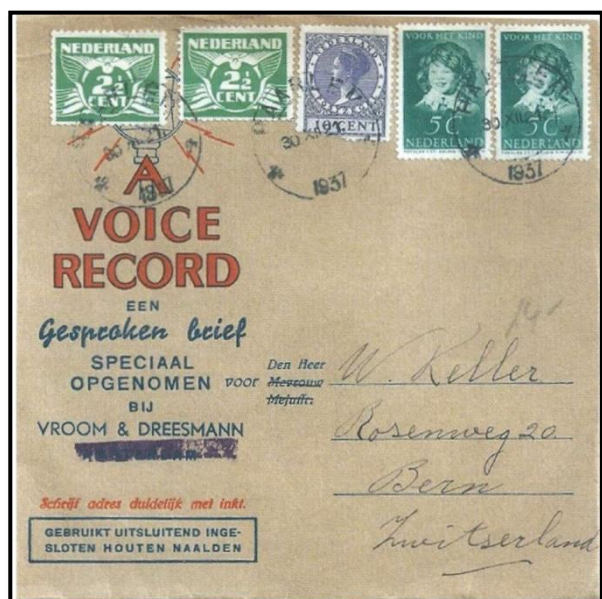 NEDERLAND
2½
CENT
NEDERLAND
2½
CENT
NEDERLAND
10 CENT
VOOR HET KIND
5C
NEDERLAND
VOOR HET KIND
5C
NEDERLAND
30 XII
1937
30 XII
1937
30 XII
1937
A
VOICE
RECORD
EEN
Gesproken brief
SPECIAAL
OPGENOMEN voor
BIJ
VROOM & DREESMANN
Den Heer
Mevrouw
Mejuffr.
W. Keller
Rosenweg 20
Bern
Zwitserland
Schrijf adres duidelijk met inkt.
GEBRUIKT UITSLUITEND INGE-
SLOTEN HOUTEN NAALDEN